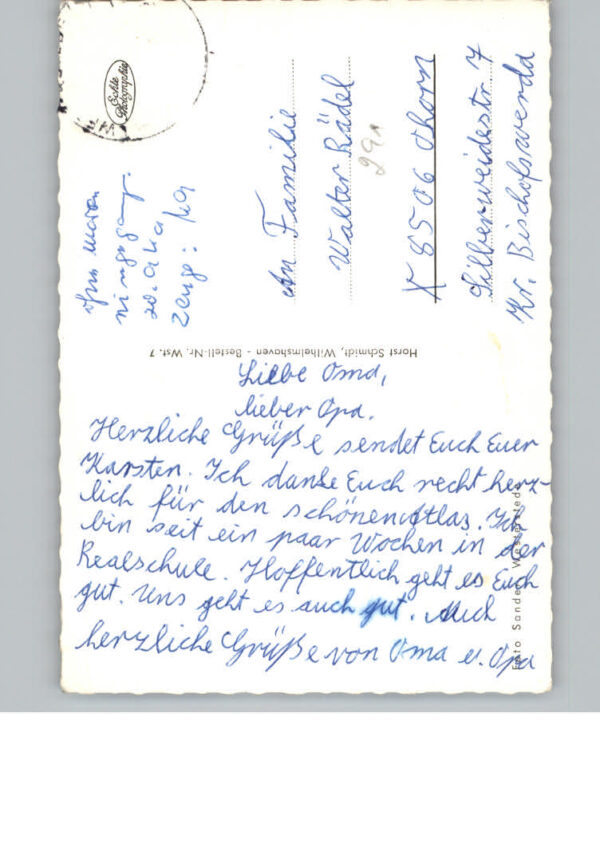 Liebe Oma,
lieber Opa.
Herzliche Grüße sendet Euch Euer
Karsten. Ich danke Euch recht herz-
lich für den schönen Atlas. Ich
bin seit ein paar Wochen in der
Realschule. Hoffentlich geht es Euch
gut. Uns geht es auch gut. Auch
herzliche Grüße von Oma u. Opa
Horst Schmidt, Wilhelmshaven - Bestell-Nr. Wst. 7
Foto Sander, Westerstede
Echte
Photographie
An Familie
Walter Rädel
X 8506 Thorn
Silberweidestr. 7
Kr. Bischofswerda